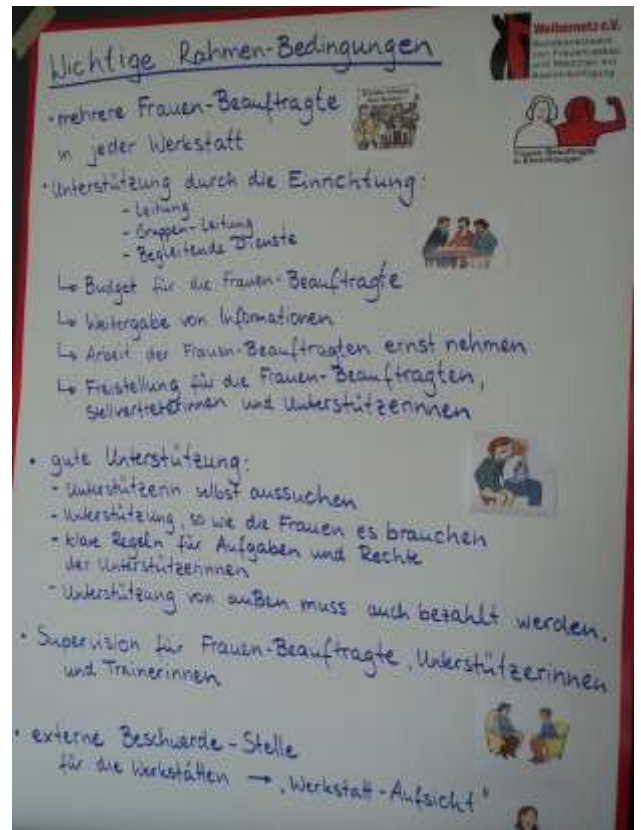 Wichtige Rahmen-Bedingungen
Weibernetz e.V.
Bundesnetzwerk
von FrauenLesben
und Mädchen mit
Beeinträchtigung
• mehrere Frauen-Beauftragte
in jeder Werkstatt
Frauen-Beauftragte
in Einrichtungen
• Unterstützung durch die Einrichtung:
- Leitung
- Gruppen-Leitung
- Begleitende Dienste
↳ Budget für die Frauen-Beauftragte
↳ Weitergabe von Informationen
↳ Arbeit der Frauen-Beauftragten ernst nehmen
↳ Freistellung für die Frauen-Beauftragten,
Stellvertreterinnen und Unterstützerinnen
• gute Unterstützung:
- Unterstützerin selbst aussuchen
- Unterstützung, so wie die Frauen es brauchen
- klare Regeln für Aufgaben und Rechte
der Unterstützerinnen
- Unterstützung von außen muss auch bezahlt werden.
• Supervision für Frauen-Beauftragte, Unterstützerinnen
und Trainerinnen
• externe Beschwerde-Stelle
für die Werkstätten → „Werkstatt-Aufsicht"